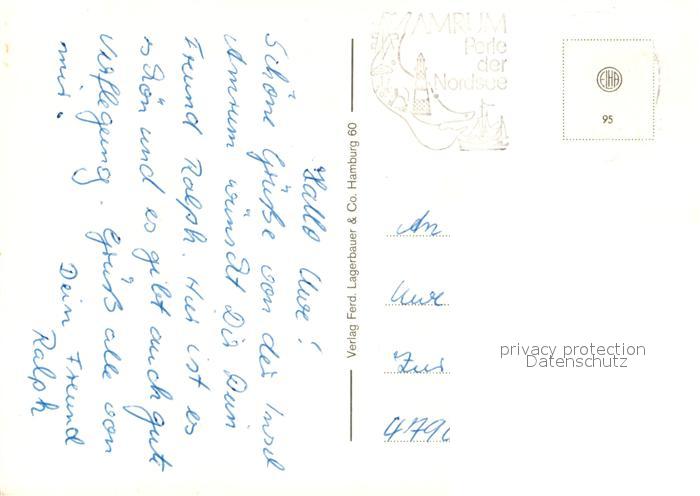 Hallo Uwe!
Schöne Grüße von der Insel
Amrum wünscht Dir Dein
Freund Ralph. Hier ist es
schön und es gibt auch gute
Verflegung. Grüß alle von
mir.
Dein Freund
Ralph
Verlag Ferd. Lagerbauer & Co. Hamburg 60
AMRUM
Perle
der
Nordsee
EHA
95
An
Uwe
Zur
4790
privacy protection
Datenschutz